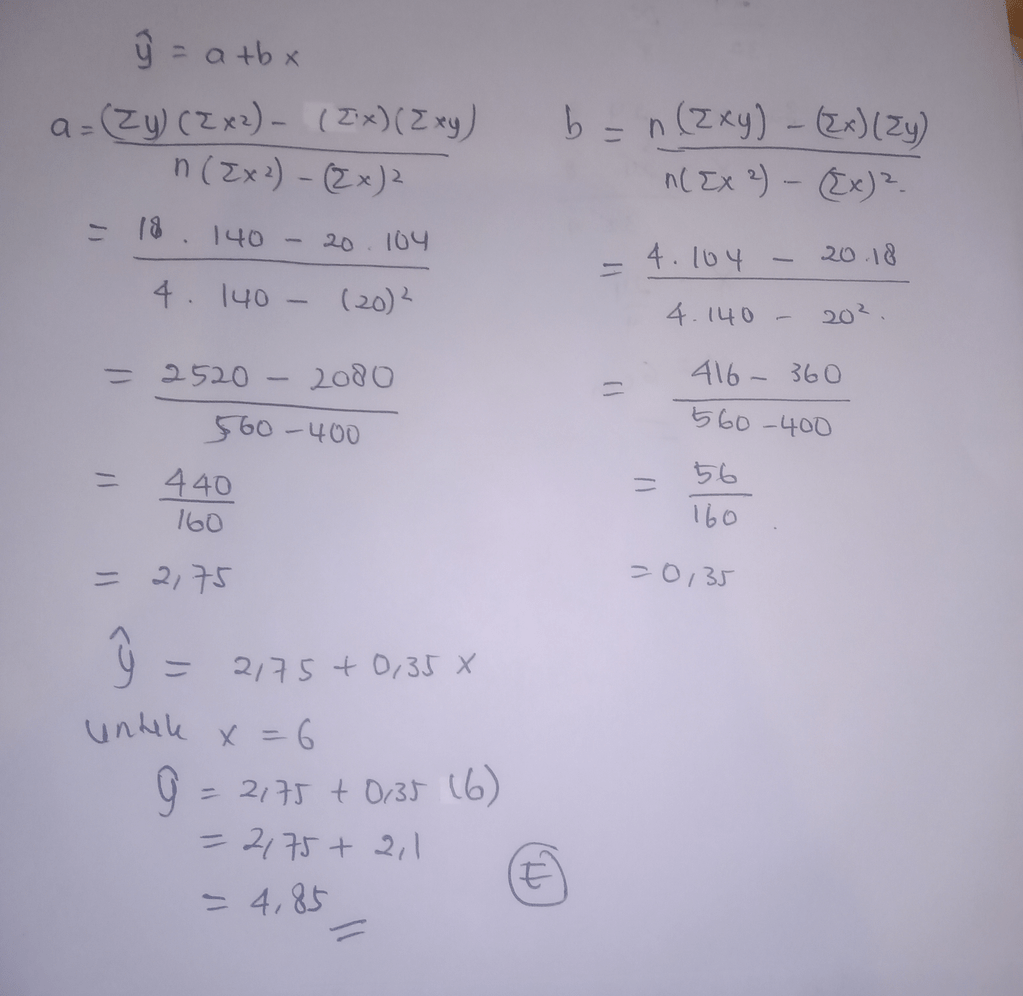 ŷ = a + b x
a = (Σy)(Σx²) - (Σx)(Σxy)
n(Σx²) - (Σx)²
= 18 . 140 - 20 . 104
4 . 140 - (20)²
= 2520 - 2080
560 - 400
= 440
160
= 2,75
b = n(Σxy) - (Σx)(Σy)
n(Σx²) - (Σx)².
= 4.104 - 20.18
4.140 - 20².
= 416 - 360
560 - 400
= 56
160
= 0,35
ŷ = 2,75 + 0,35 x
untuk x = 6
ŷ = 2,75 + 0,35 (6)
= 2,75 + 2,1
= 4,85
E